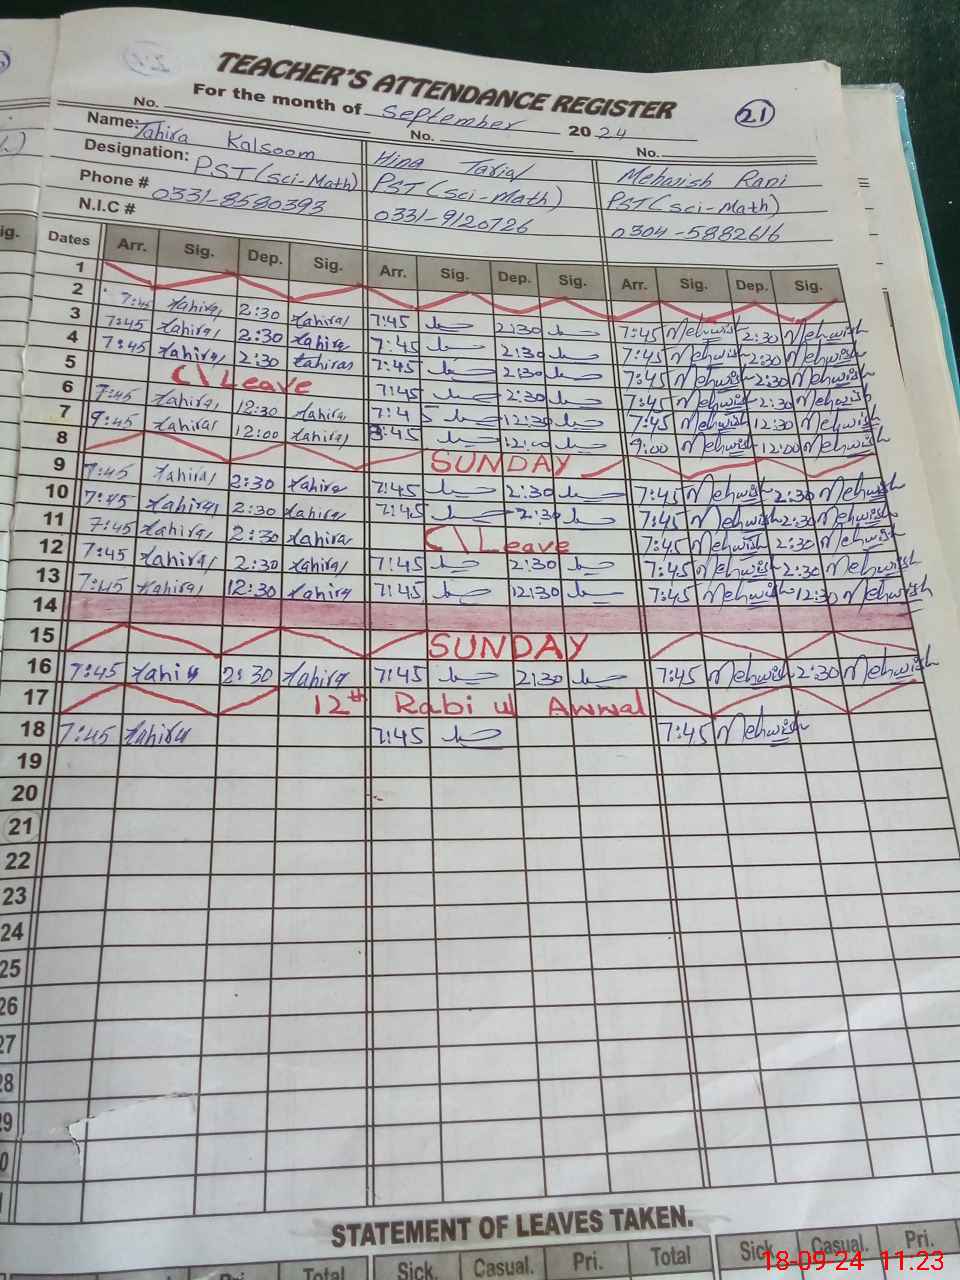 TEACHER'S ATTENDANCE REGISTER
21
For the month of September 2024
No. No. No.
Name: Tahira Kalsoom Hina Tariq Mehwish Rani
Designation: PST(Sci-Math) PST(Sci-Math) PST(Sci-Math)
Phone # 0331-8580393 0331-9120726 0304-5882616
N.I.C #
Dates Arr. Sig. Dep. Sig. Arr. Sig. Dep. Sig. Arr. Sig. Dep. Sig.
1
2 7:45 tahira 2:30 tahira 7:45 2:30 7:45 Mehwish 2:30 Mehwish
3 7:45 tahira 2:30 tahira 7:45 2:30 7:45 Mehwish 2:30 Mehwish
4 7:45 tahira 2:30 tahira 7:45 2:30 7:45 Mehwish 2:30 Mehwish
5 C\Leave 7:45 2:30 7:45 Mehwish 2:30 Mehwish
6 7:45 tahira 12:30 tahira 7:45 12:30 7:45 Mehwish 12:30 Mehwish
7 9:45 tahira 12:00 tahira 12:00 9:00 Mehwish 12:00 Mehwish
8 SUNDAY
9 7:45 tahira 2:30 tahira 7:45 2:30 7:45 Mehwish 2:30 Mehwish
10 7:45 tahira 2:30 tahira 7:45 2:30 7:45 Mehwish 2:30 Mehwish
11 7:45 tahira 2:30 tahira C\Leave 7:45 Mehwish 2:30 Mehwish
12 7:45 tahira 2:30 tahira 7:45 2:30 7:45 Mehwish 2:30 Mehwish
13 7:45 tahira 12:30 tahira 7:45 12:30 7:45 Mehwish 12:30 Mehwish
14
15 SUNDAY
16 7:45 tahira 2:30 tahira 7:45 2:30 7:45 Mehwish 2:30 Mehwish
17 12th Rabi ul Awwal
18 7:45 tahira 7:45 7:45 Mehwish
19
20
21
22
23
24
25
26
27
28
29
STATEMENT OF LEAVES TAKEN.
Pri. Total Sick. Casual. Pri. Total Sick. Casual. Pri.
18-09-24 11:23